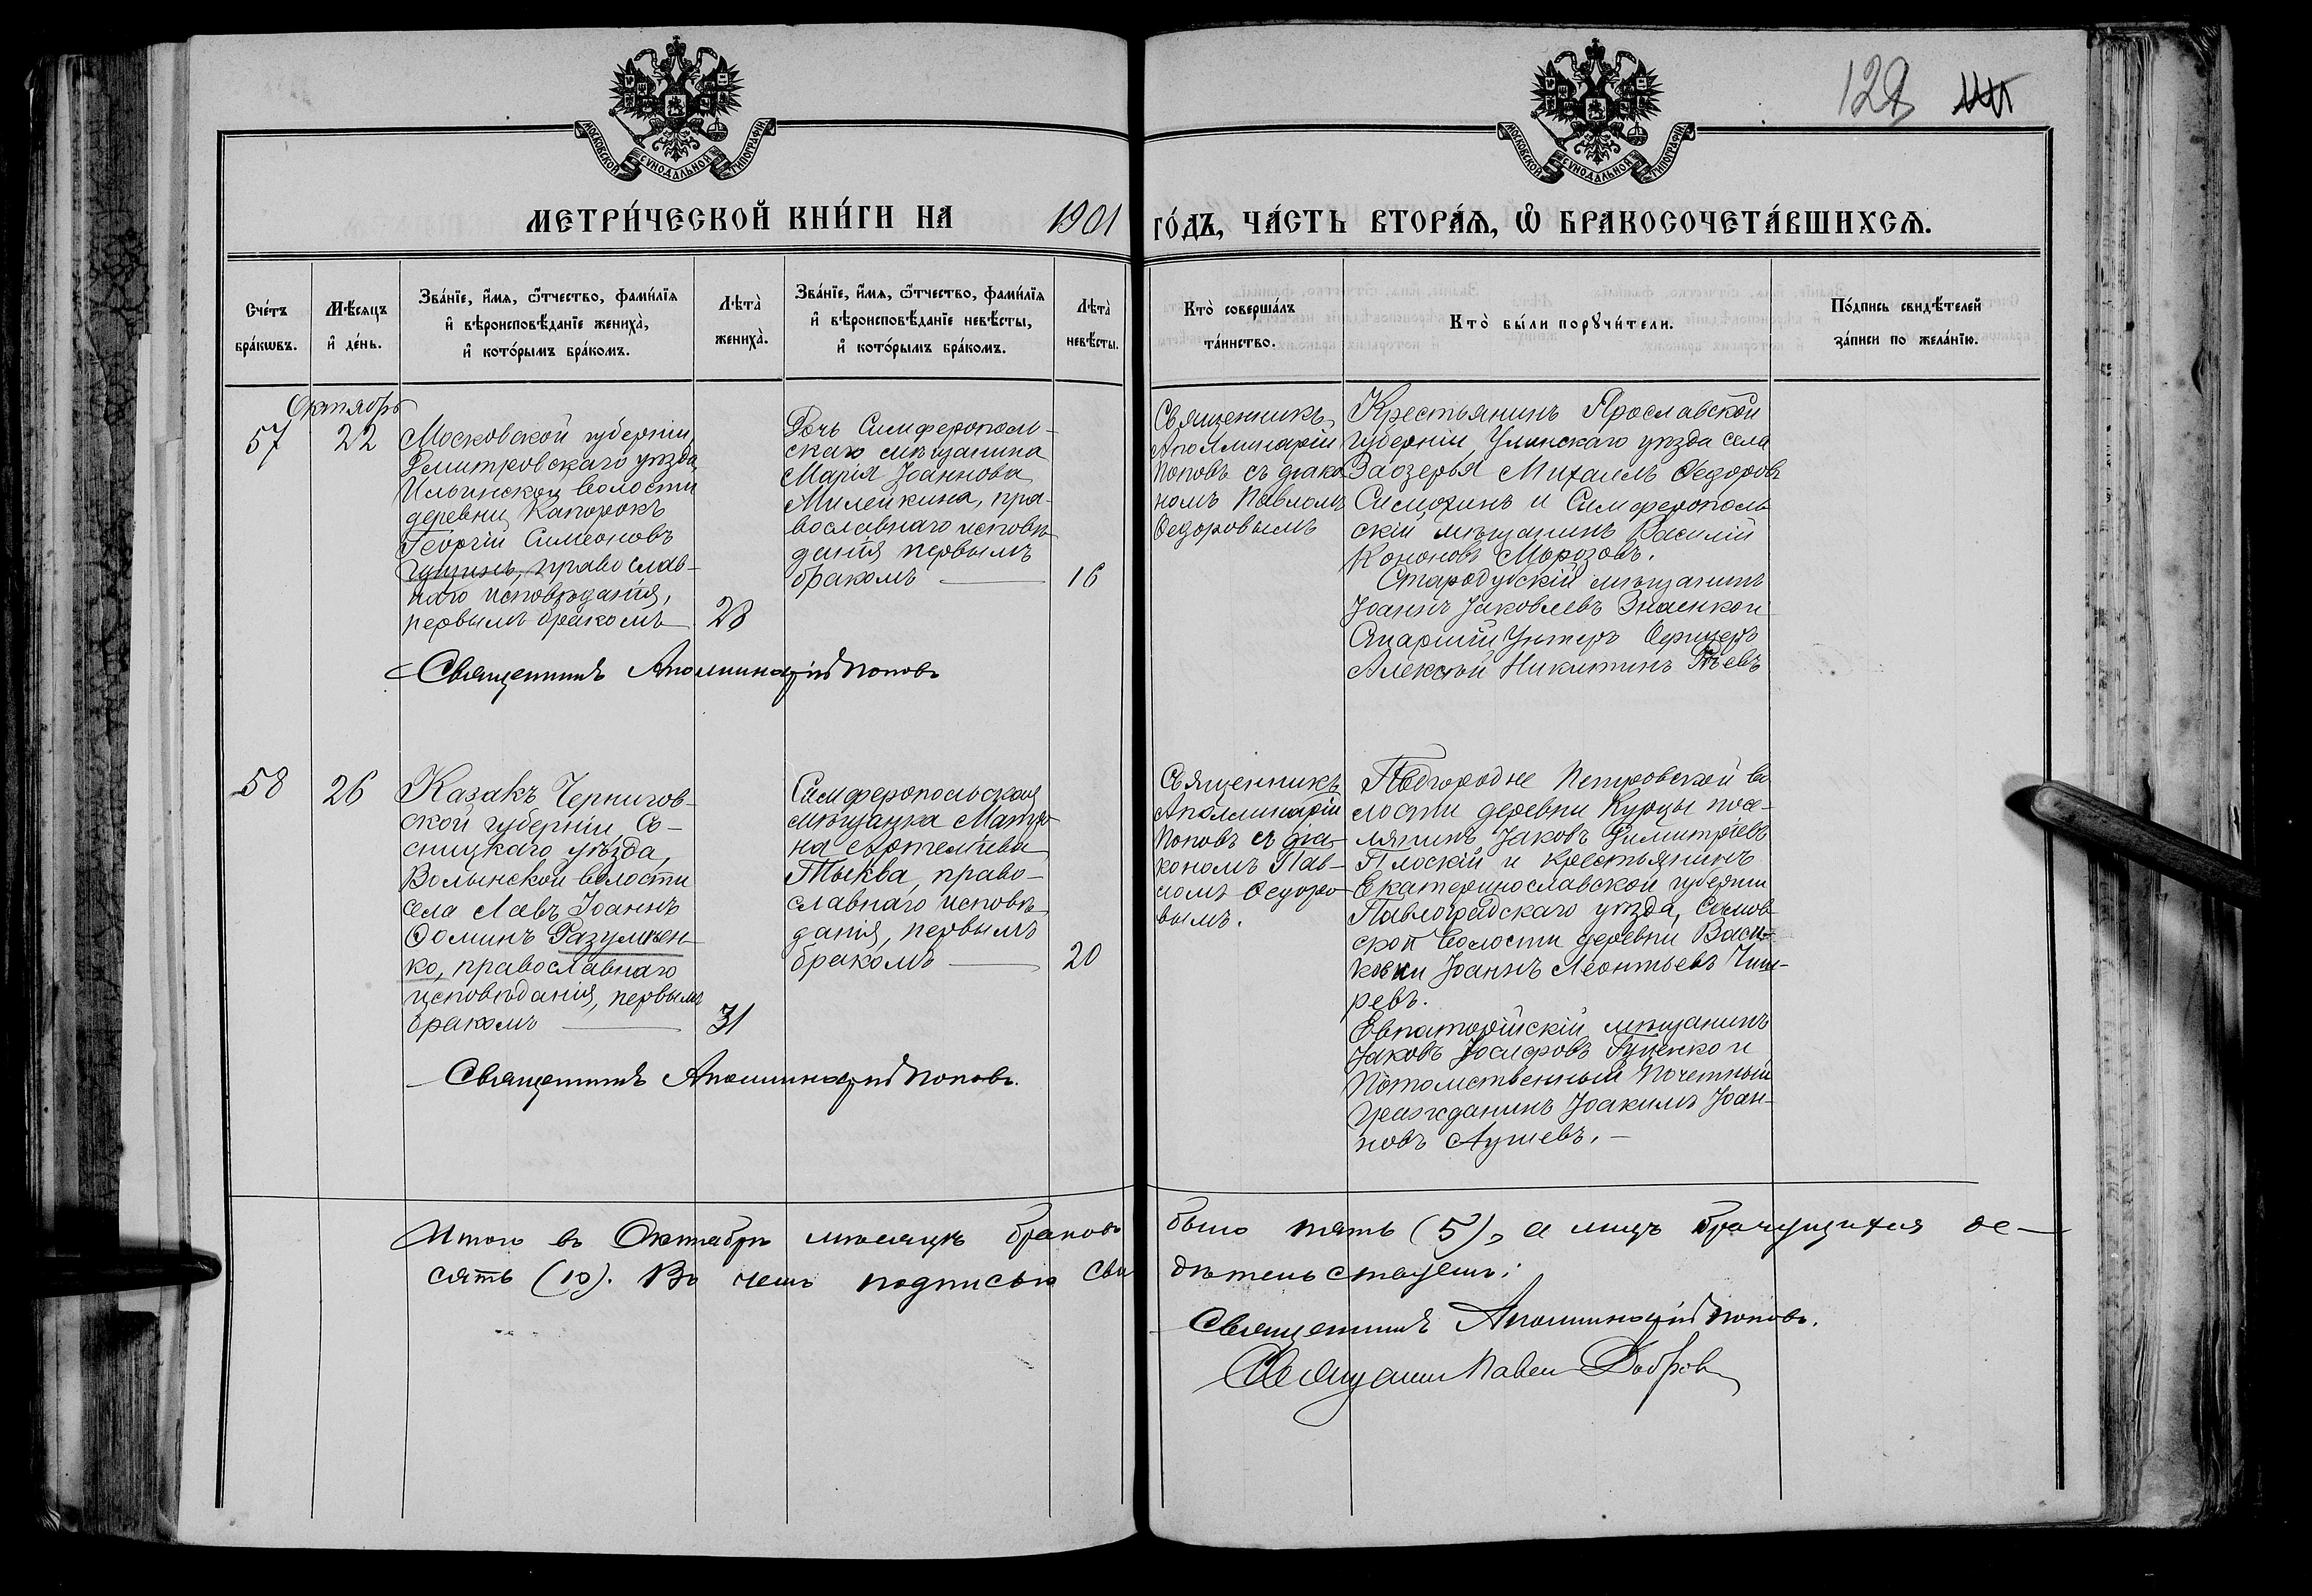 128
МОСКОВСКОЙ СѴНОДАЛЬНОЙ ТИПОГРАФІИ
МОСКОВСКОЙ СѴНОДАЛЬНОЙ ТИПОГРАФІИ
МЕТРИ́ЧЕСКОЙ КНИ́ГИ НА 1901 ГО́ДЪ, ЧА́СТЬ ВТОРА́Я, Ѽ БРАКОСОЧЕТА́ВШИХСЯ.
Сче́тъ
бра́кѡвъ.
Мѣ́сяцъ
и҆ де́нь.
Зва́нїе, и҆́мя, ѻ҆́тчество, фами́лїя
и҆ вѣроисповѣ́данїе жениха̀,
и҆ кото́рымъ бра́комъ.
Лѣта̀
жениха̀.
Зва́нїе, и҆́мя, ѻ҆́тчество, фами́лїя
и҆ вѣроисповѣ́данїе невѣ́сты,
и҆ кото́рымъ бра́комъ.
Лѣта̀
невѣ́сты.
Кто̀ соверша́лъ
та́инство.
Кто̀ бы́ли порꙋчи́тели.
По́дпись свидѣ́телей
за́писи по жела́нїю.
Октябрь
57
22
Московской губерніи,
Дмитровскаго уѣзда
Ильинской волости
деревни Капорокъ
Георгій Симеоновъ
православ-
наго исповѣданія,
первымъ бракомъ
28
Дочь Симферополь-
скаго мѣщанина
Марія Іоаннова
Милейкина, пра-
вославнаго исповѣ-
данія первымъ
бракомъ
16
Священникъ
Аполлинарій
Поповъ съ діако-
номъ Павломъ
Ѳедоровымъ
Крестьянинъ Ярославской
губерніи, уѣзда села
Заозерья Михаилъ Ѳедоровъ
и Симферополь
скій мѣщанинъ Василій
Кононовъ Морозовъ.
Стародубскій мѣщанинъ
Іоаннъ Іаковлевъ и
Старшій Унтеръ Офицеръ
Алексѣй Никитинъ
Священникъ Аполлинарій Поповъ
58
26
Казакъ Чернигов-
ской губерніи, Со-
сницкаго уѣзда,
Волынской волости
села Лавъ Іоаннъ
Ѳоминъ Разумѣен-
ко, православнаго
исповѣданія, первымъ
бракомъ
31
Симферопольская
мѣщанка Матро-
на
Тыква, право-
славнаго исповѣ-
данія, первымъ
бракомъ
20
Священникъ
Аполлинарій
Поповъ съ діа-
кономъ Пав-
ломъ Ѳедоро-
вымъ.
Подгородне Петровской во
лости деревни Курцы посе-
лянинъ Іаковъ Димитріевъ
Плоскій и крестьянинъ
Екатеринославской губерніи
Павлоградскаго уѣзда,
ской волости деревни Васи-
ковки Іоаннъ Леонтьевъ Чиги-
ревъ.
Евпаторійскій мѣщанинъ
Іаковъ Іосифовъ Гуценко и
Потомственный Почетный
Гражданинъ Іоакимъ Іоан-
новъ
Священникъ Аполлинарій Поповъ.
Итого въ Октябрѣ мѣсяцѣ браковъ было пять (5), а лицъ брачущихся де-
сять (10). Въ чемъ подписью сви дѣтельствуемъ:
Священникъ Аполлинарій Поповъ.
Павел